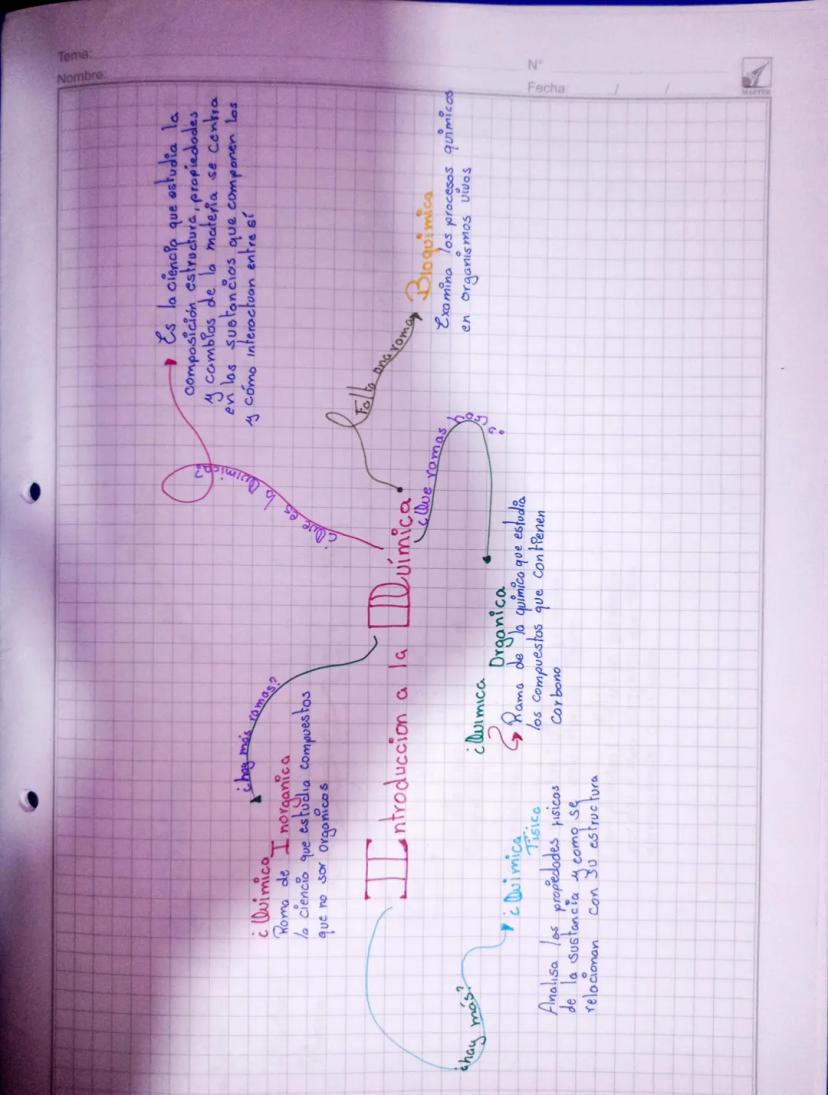 Tema:
Nombre:
N°
Fecha: / /
MASTER
Introduccion a la Química
¿Que es la Quimica?
Es la ciencia que estudia la
composición estructura, propiedades
y cambios de la materia se centra
en las sustancias que componen los
y cómo interactuan entre sí
Falta una rama
Bioquimica
Examina los procesos quimicos
en organismos vivos
¿Que ramas hay?
¿Quimica Organica
Rama de la quimica que estudia
los compuestos que contienen
carbono
¿hay más ramas?
¿Quimica
Inorganica
Rama de
la ciencia que estudia compuestos
que no sor organicos
¿hay más?
¿Quimica
Fisica
Analisa las propiedades fisicas
de la sustancia y como se
relacionan con su estructura